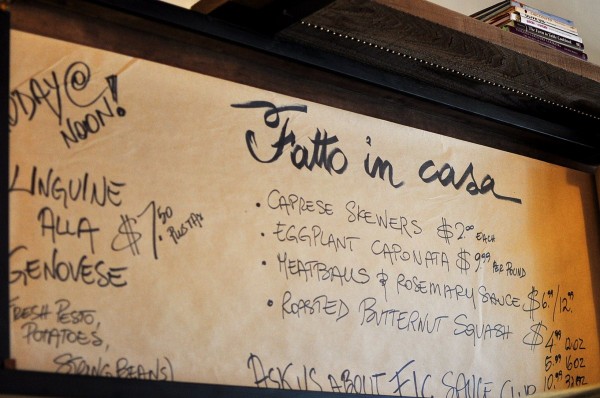 TODAY @
NOON!
LINGUINE
ALLA
GENOVESE
$7.50
PLUS TAX
FRESH PESTO,
POTATOES,
STRING BEANS)
Fatto in casa
• CAPRESE SKEWERS $2.00 EACH
• EGGPLANT CAPONATA $9.99 PER POUND
• MEATBALLS & ROSEMARY SAUCE $6.99/12.99
• ROASTED BUTTERNUT SQUASH $4.99 12OZ
5.99 16OZ
10.99 32OZ
ASK US ABOUT FIC SAUCE CLUB